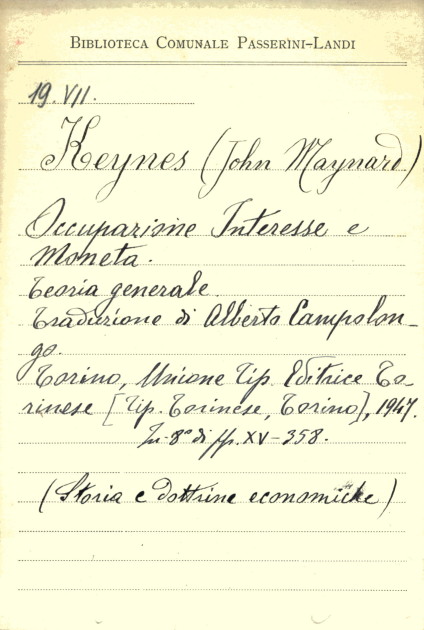 BIBLIOTECA COMUNALE PASSERINI-LANDI
19. VII.
Keynes (John Maynard)
Occupazione Interesse e
Moneta.
Teoria generale.
Traduzione di Alberto Campolon-
go.
Torino, Unione Tip. Editrice To-
rinese [Tip. Torinese, Torino], 1947.
In-8° di pp. XV-358.
(Storia e dottrine economiche)